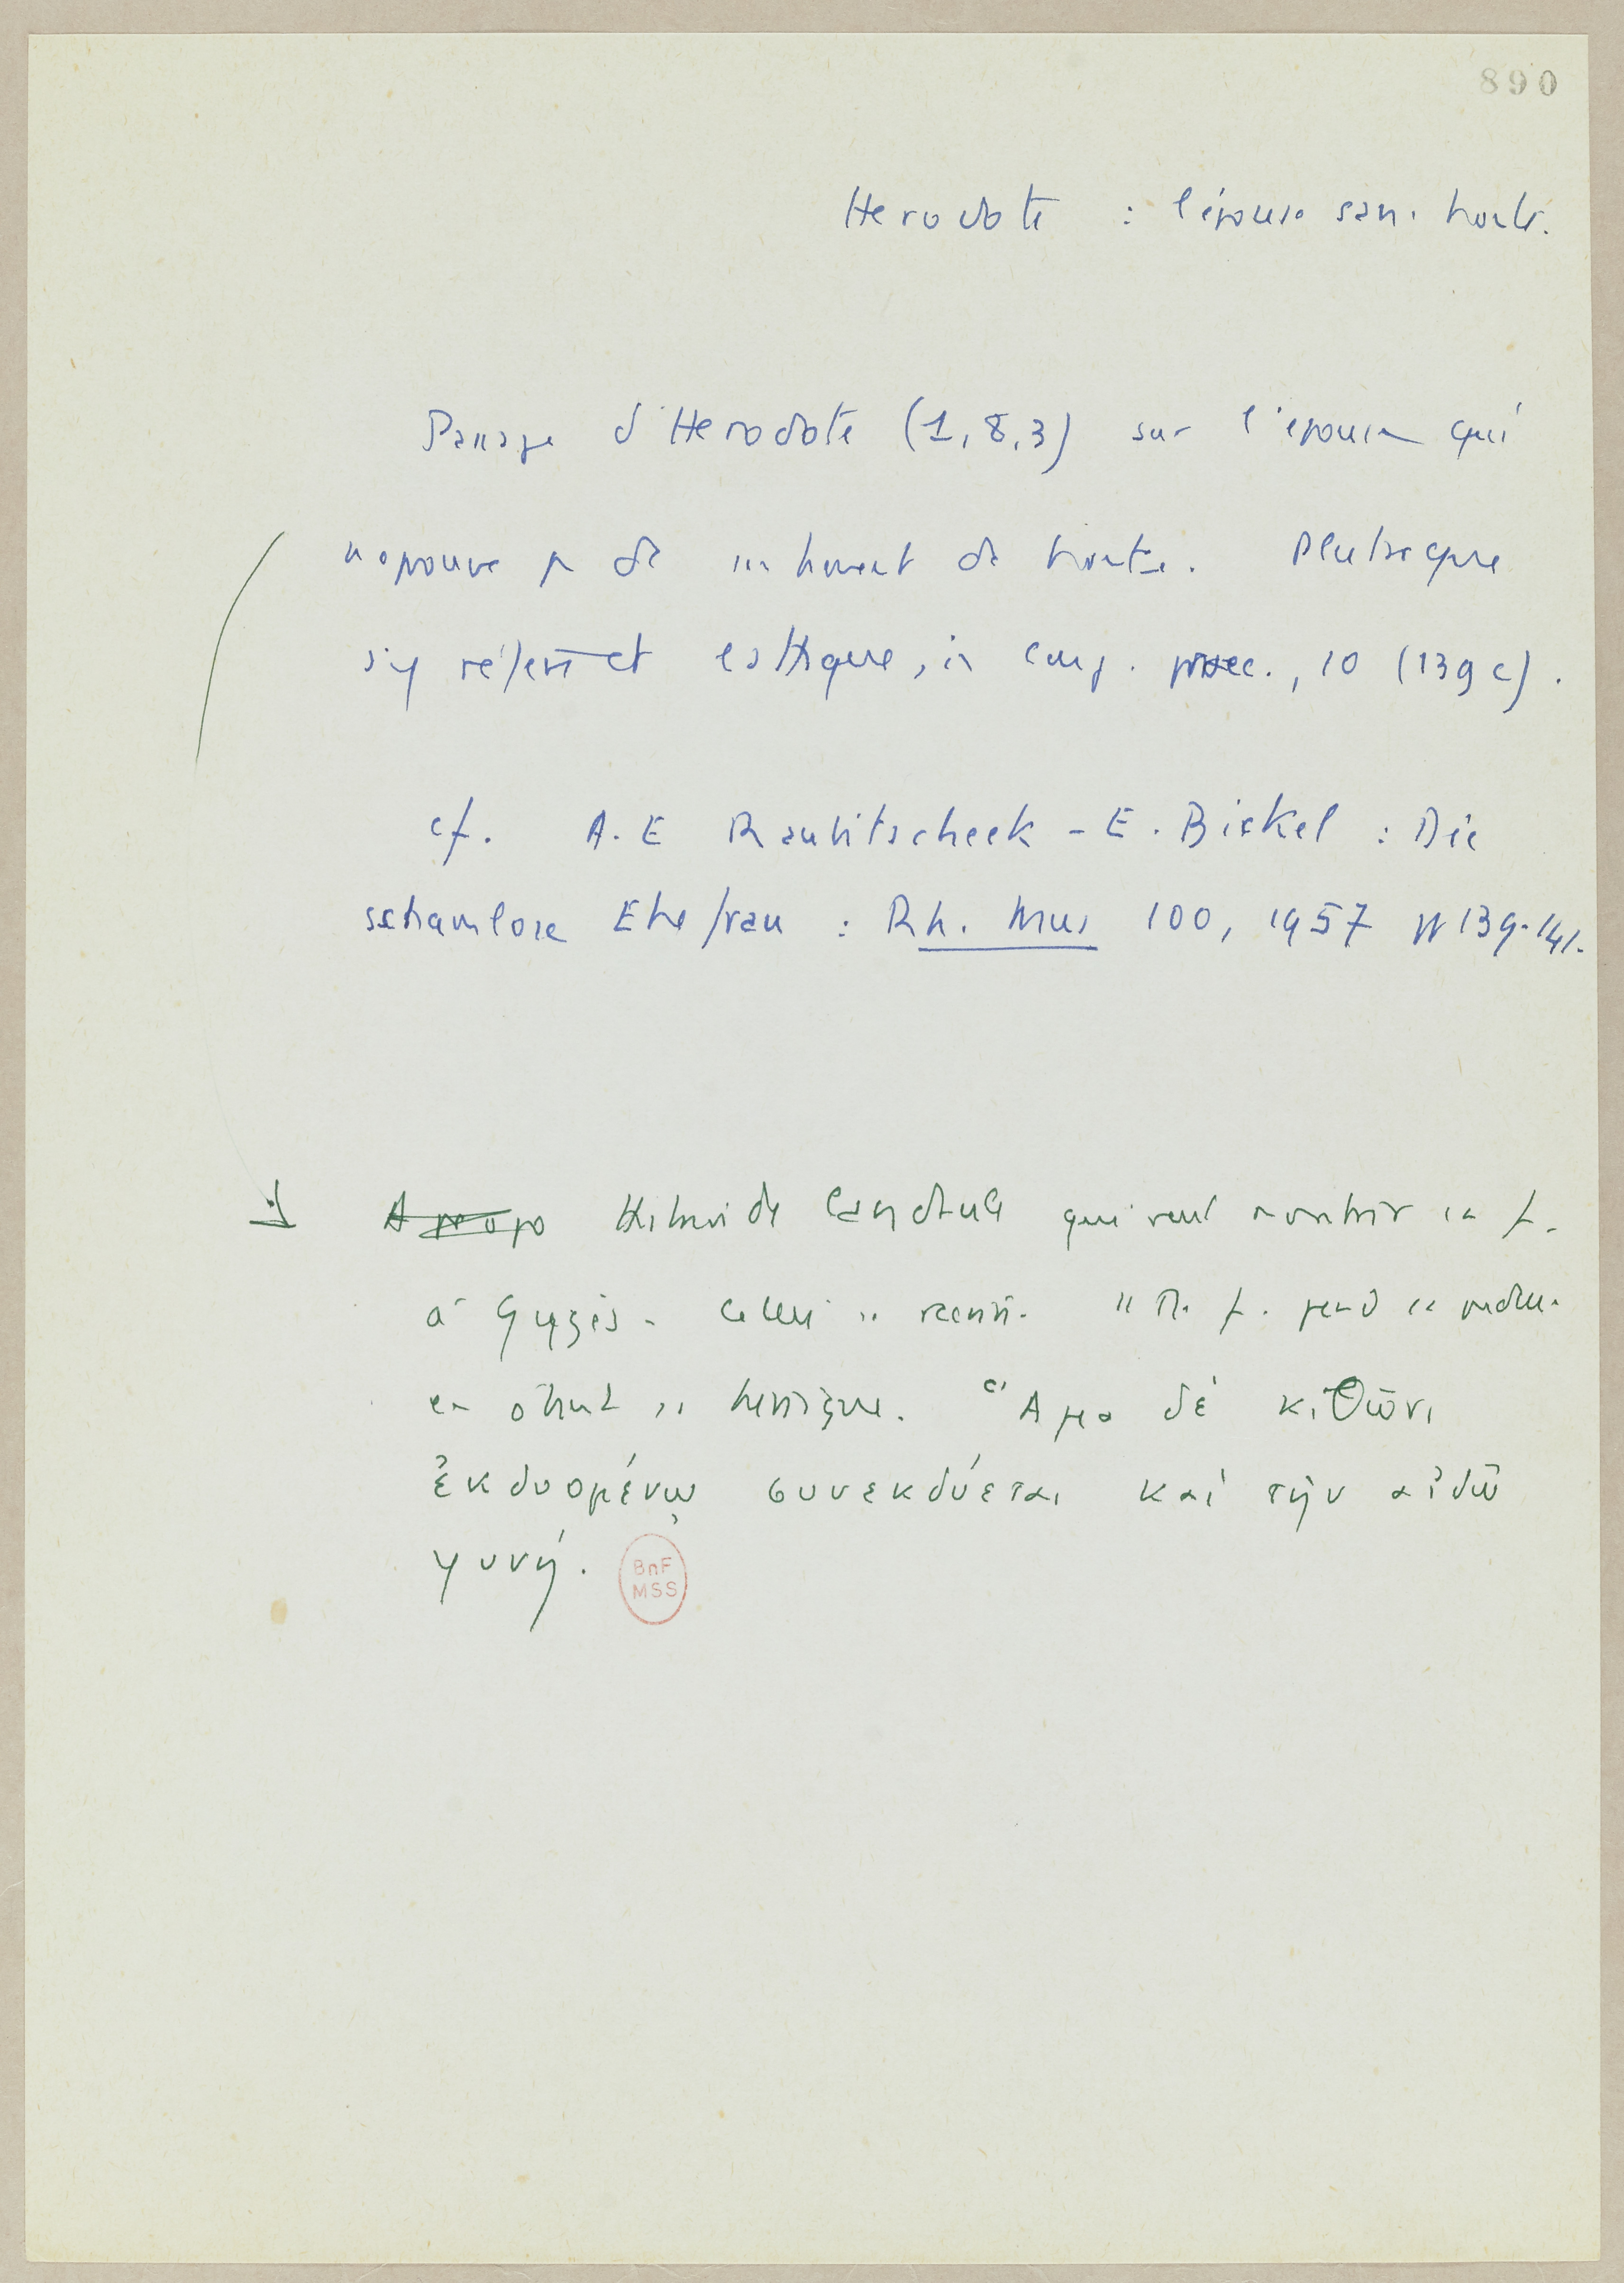 890
Herodote : l'épouse sans honte.
Passage d'Herodote (1, 8, 3) sur l'épouse qui
n'eprouve p de sentiment de honte. Plutarque
s'y réfère et critique, in conj. praec., 10 (139 c).
cf. A. E Raubitscheck - E. Bickel : Die
schamlose Ehefrau : Rh. Mus 100, 1957 pp 139-141.
A propo Histoire de Candaule qui veut montrer sa f.
à Gygès. Celui ci "f. perd sa pudeur
en ôtant sa chemise. Ἅμα δὲ κιθῶνι
ἐκδυομένῳ συνεκδύεται καὶ τὴν αἰδῶ
γυνή.
BnF
MSS